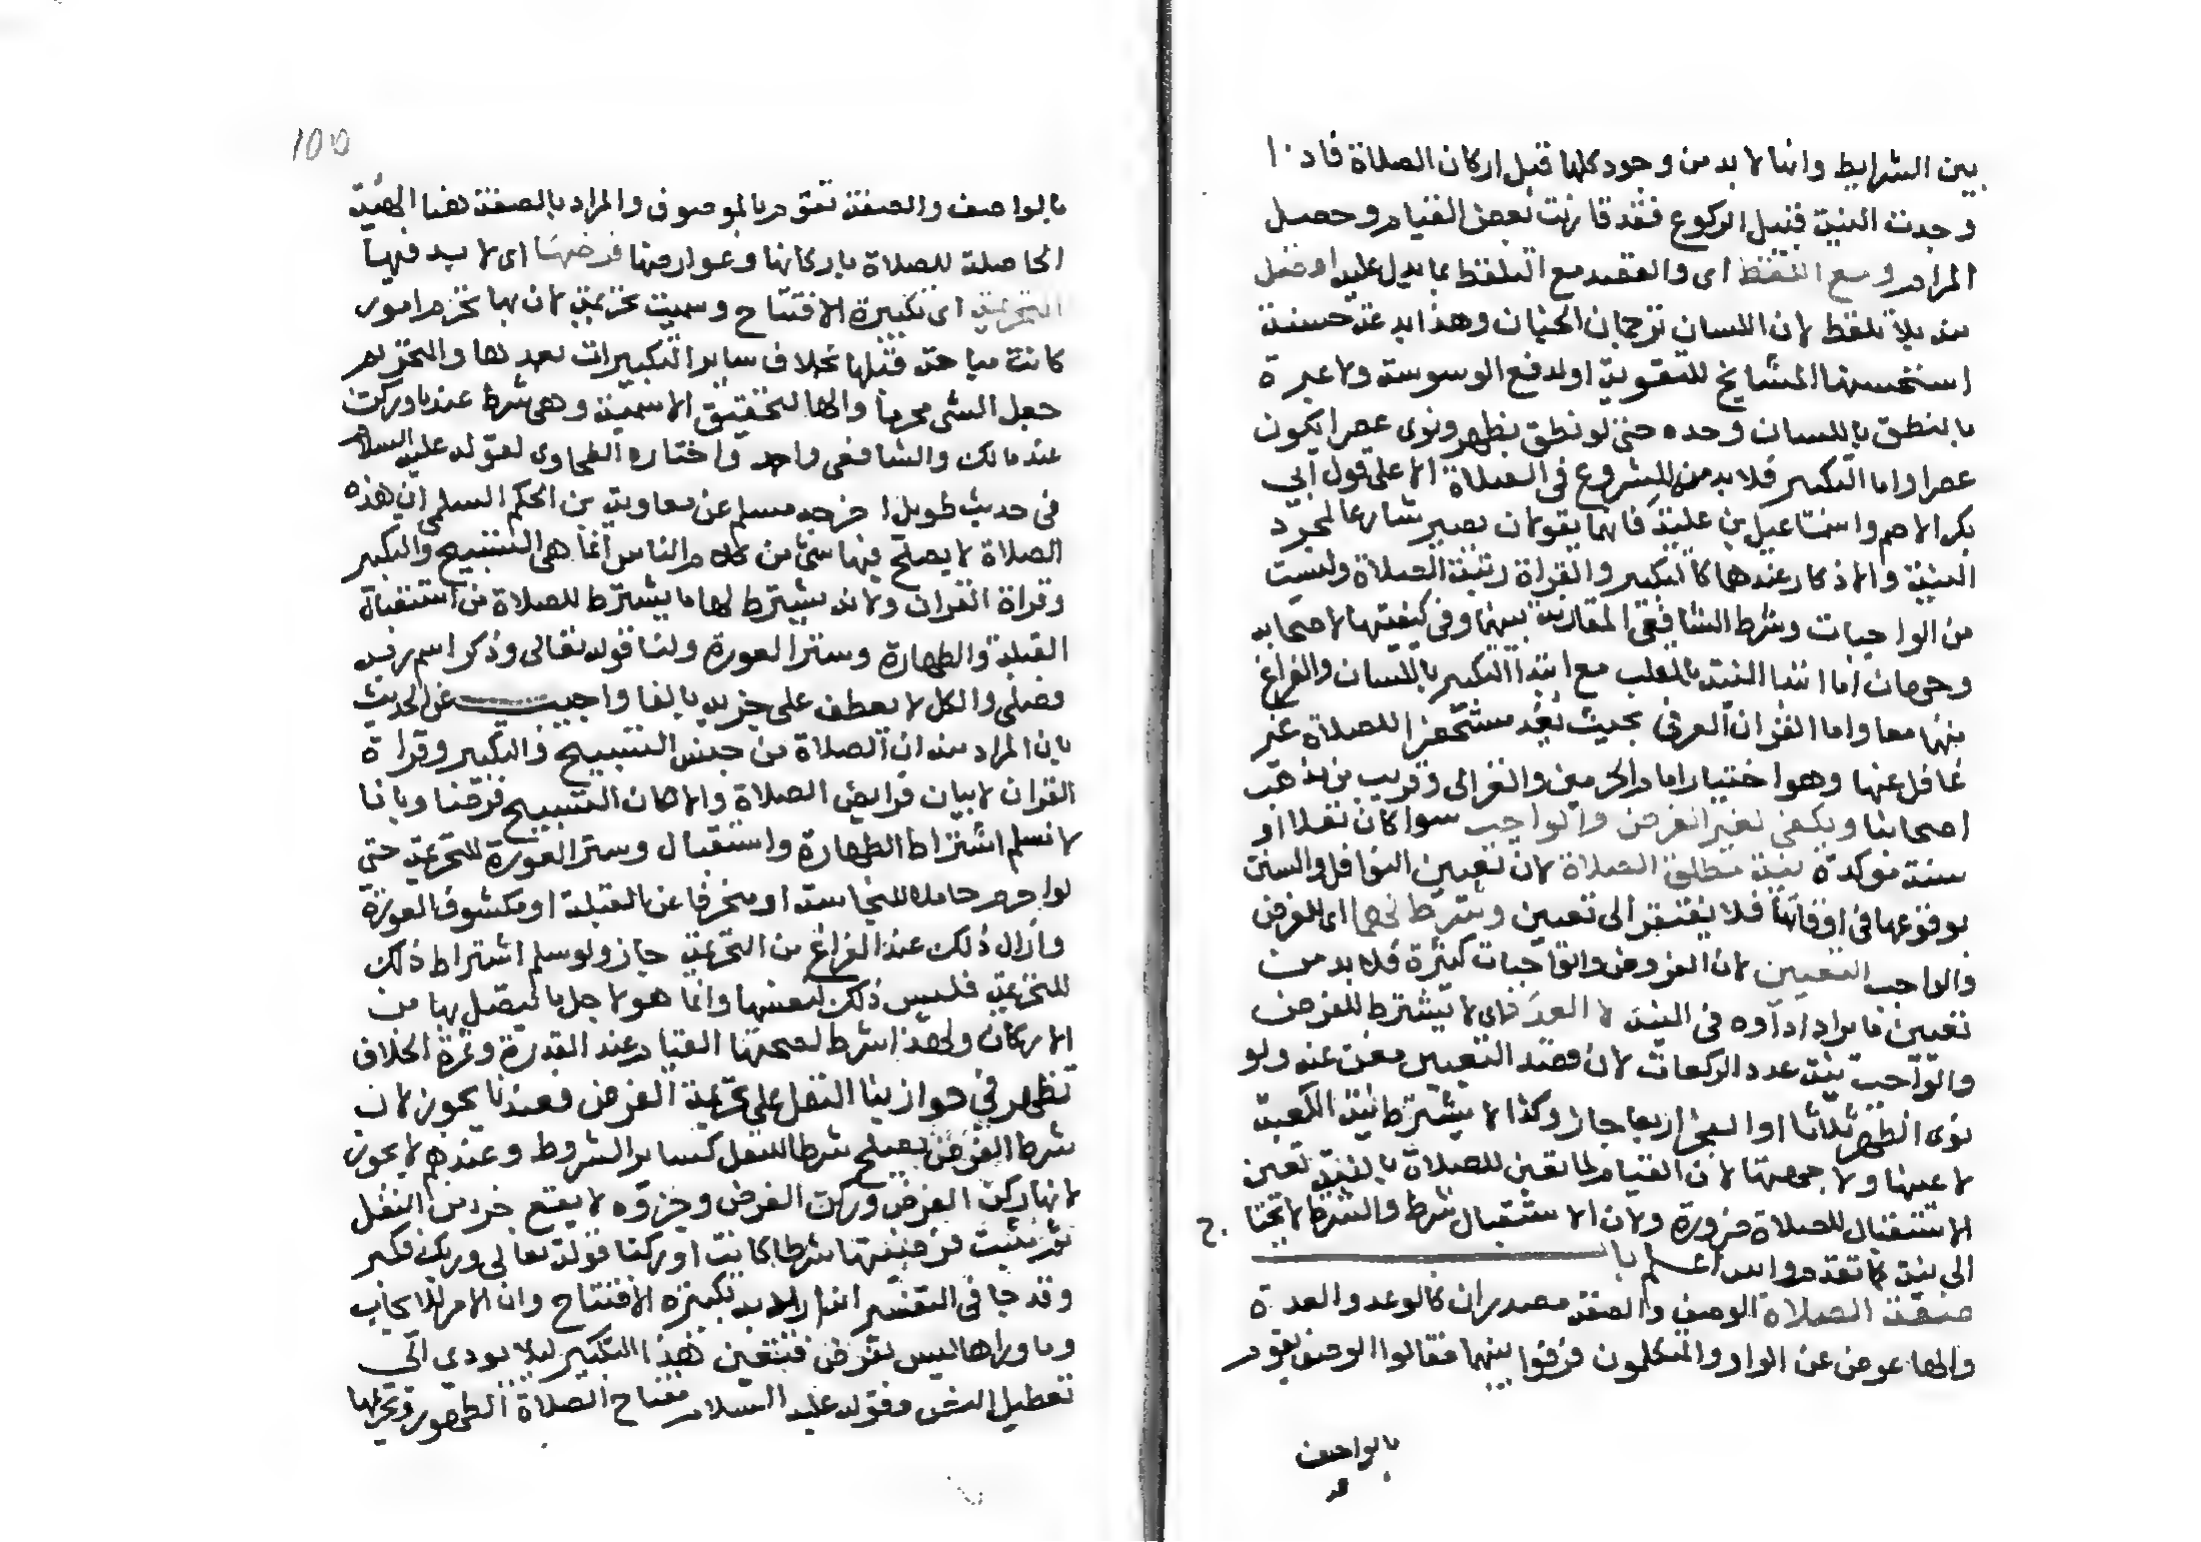 بين الشرايط وانها لا بد من وجود كلها قبل اركان الصلاة فاذا
وجدت النية قبيل الركوع فقد قارنت بعض القيام وحصل
المرام ومع التلفظ اى والقصد مع التلفظ بما يدل عليه افضل
منه بلا تلفظ لان اللسان ترجمان الجنان وهذا بدعة حسنة
استحسنها المشايخ للتقوية او لدفع الوسوسة ولا عبرة
بالنطق باللسان وحده حتى لو نطق بظهر ونوى عصرا يكون
عصرا واما التكبير فلا بد منه للشروع في الصلاة الا على قول ابي
بكر الاصم واسماعيل بن علية فانهما يقولان يصير شارعا بمجرد
النية والاذكار عندهما كالتكبير والقراة زينة الصلاة وليست
من الواجبات وشرط الشافعي المقارنة بينهما وفي كيفيتها لاصحابه
وجهان اما ابتدا النية بالقلب مع ابتدا التكبير باللسان والفراغ
منهما معا واما القران العرفي بحيث يعد مستحضرا للصلاة غير
غافل عنها وهو اختيار امام الحرمين والغزالى وقريب من مذهب
اصحابنا ويكفى لغير الفرض والواجب سوا كان نفلا او
سنة موكدة نية مطلق الصلاة لان تعيين النوافل والسنن
بوقوعها في اوقاتها فلا يفتقر الى تعيين وشرط لهما اى للفرض
والواجب التعيين لان الفروض والواجبات كثيرة فلا بد من
تعيين ما يراد اداوه في النية لا العدد اى لا يشترط للفرض
والواجب نية عدد الركعات لان قصد التعيين مغن عنه ولو
نوى الظهر ثلاثا او الفجر اربعا جاز وكذا لا يشترط نية الكعبة
لا عينها ولا جهتها لان القيام لما تعين للصلاة بالنية تعين
الاستقبال للصلاة ضرورة ولان الاستقبال شرط والشرط لا يحتاج
الى نية كما تقدم والله اعلم باب
صفة الصلاة الوصف والصفة مصدران كالوعد والعدة
والها عوض عن الواو والمتكلمون فرقوا بينهما فقالوا الوصف يقوم
بالواصف
155
بالواصف والصفة تقوم بالموصوف والمراد بالصفة هنا الهيئة
الحاصلة للصلاة باركانها وعوارضها فرضها اى لا بد فيها
التحريمة اى تكبيرة الافتتاح وسميت تحريمة لان بها تحرم امور
كانت مباحة قبلها بخلاف ساير التكبيرات بعدها والتحريم
جعل الشى محرما والها لتحقيق الاسمية وهي شرط عندنا وركن
عند مالك والشافعى واحد واختاره الطحاوى لقوله عليه السلام
فى حديث طويل اخرجه مسلم عن معاوية بن الحكم السلمى ان هذه
الصلاة لا يصلح فيها شى من كلام الناس انما هى التسبيح والتكبير
وقراة القران ولانه يشترط لها ما يشترط للصلاة من استقبال
القبلة والطهارة وستر العورة ولنا قوله تعالى وذكر اسم ربه
فصلى والكل لا يعطف على جزيه بالفا واجيب عن الحديث
بان المراد منه ان الصلاة من جنس التسبيح والتكبير وقراة
القران لا بيان فرايض الصلاة والا كان التسبيح فرضا وبانا
لا نسلم اشتراط الطهارة واستقبال وستر العورة للتحريمة حتى
لو احرم حاملا للنجاسة او منحرفا عن القبلة او مكشوف العورة
وازال ذلك عند الفراغ من التحريمة جاز ولو سلم اشتراط ذلك
للتحريمة فليس ذلك لنفسها وانما هو لاجل ما يتصل بها من
الاركان ولهذا شرط لصحتها القيام عند القدرة وثمرة الخلاف
تظهر في جواز بنا النفل على تحريمة الفرض فعندنا يجوز لان
شرط الفرض يصلح شرطا للنفل كساير الشروط وعندهم لا يجوز
لانها ركن الفرض وركن الفرض وجزوه لا يقع جزء من النفل
ثم يثبت فرضيتها شرطا كانت او ركنا قوله تعالى وربك فكبر
وقد جا فى التفسير ان المراد به تكبيرة الافتتاح وان الامر للايجاب
وما وراها ليس بفرض فيتعين هذا التكبير ليلا يودي الى
تعطيل النص وقوله عليه السلام مفتاح الصلاة الطهور وتحريمها